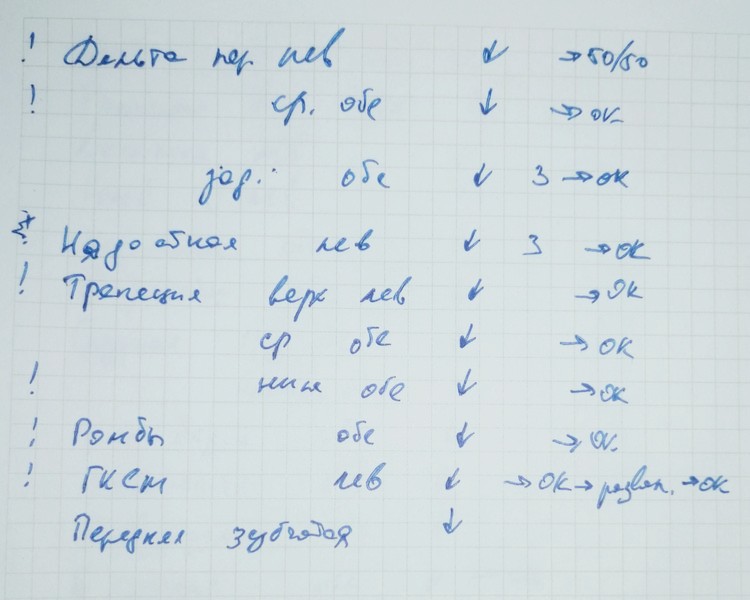 ! Дельта пер. лев ↓ → 50/50
! ср. обе ↓ → ок
зад. обе ↓ 3 → ок
! Надостная лев ↓ 3 → ок
! Трапеция верх лев ↓ → ок
ср обе ↓ → ок
! ниж обе ↓ → ок
! Ромбы обе ↓ → ок
! ГКСМ лев ↓ → ок → → ок
Передняя зубчатая ↓